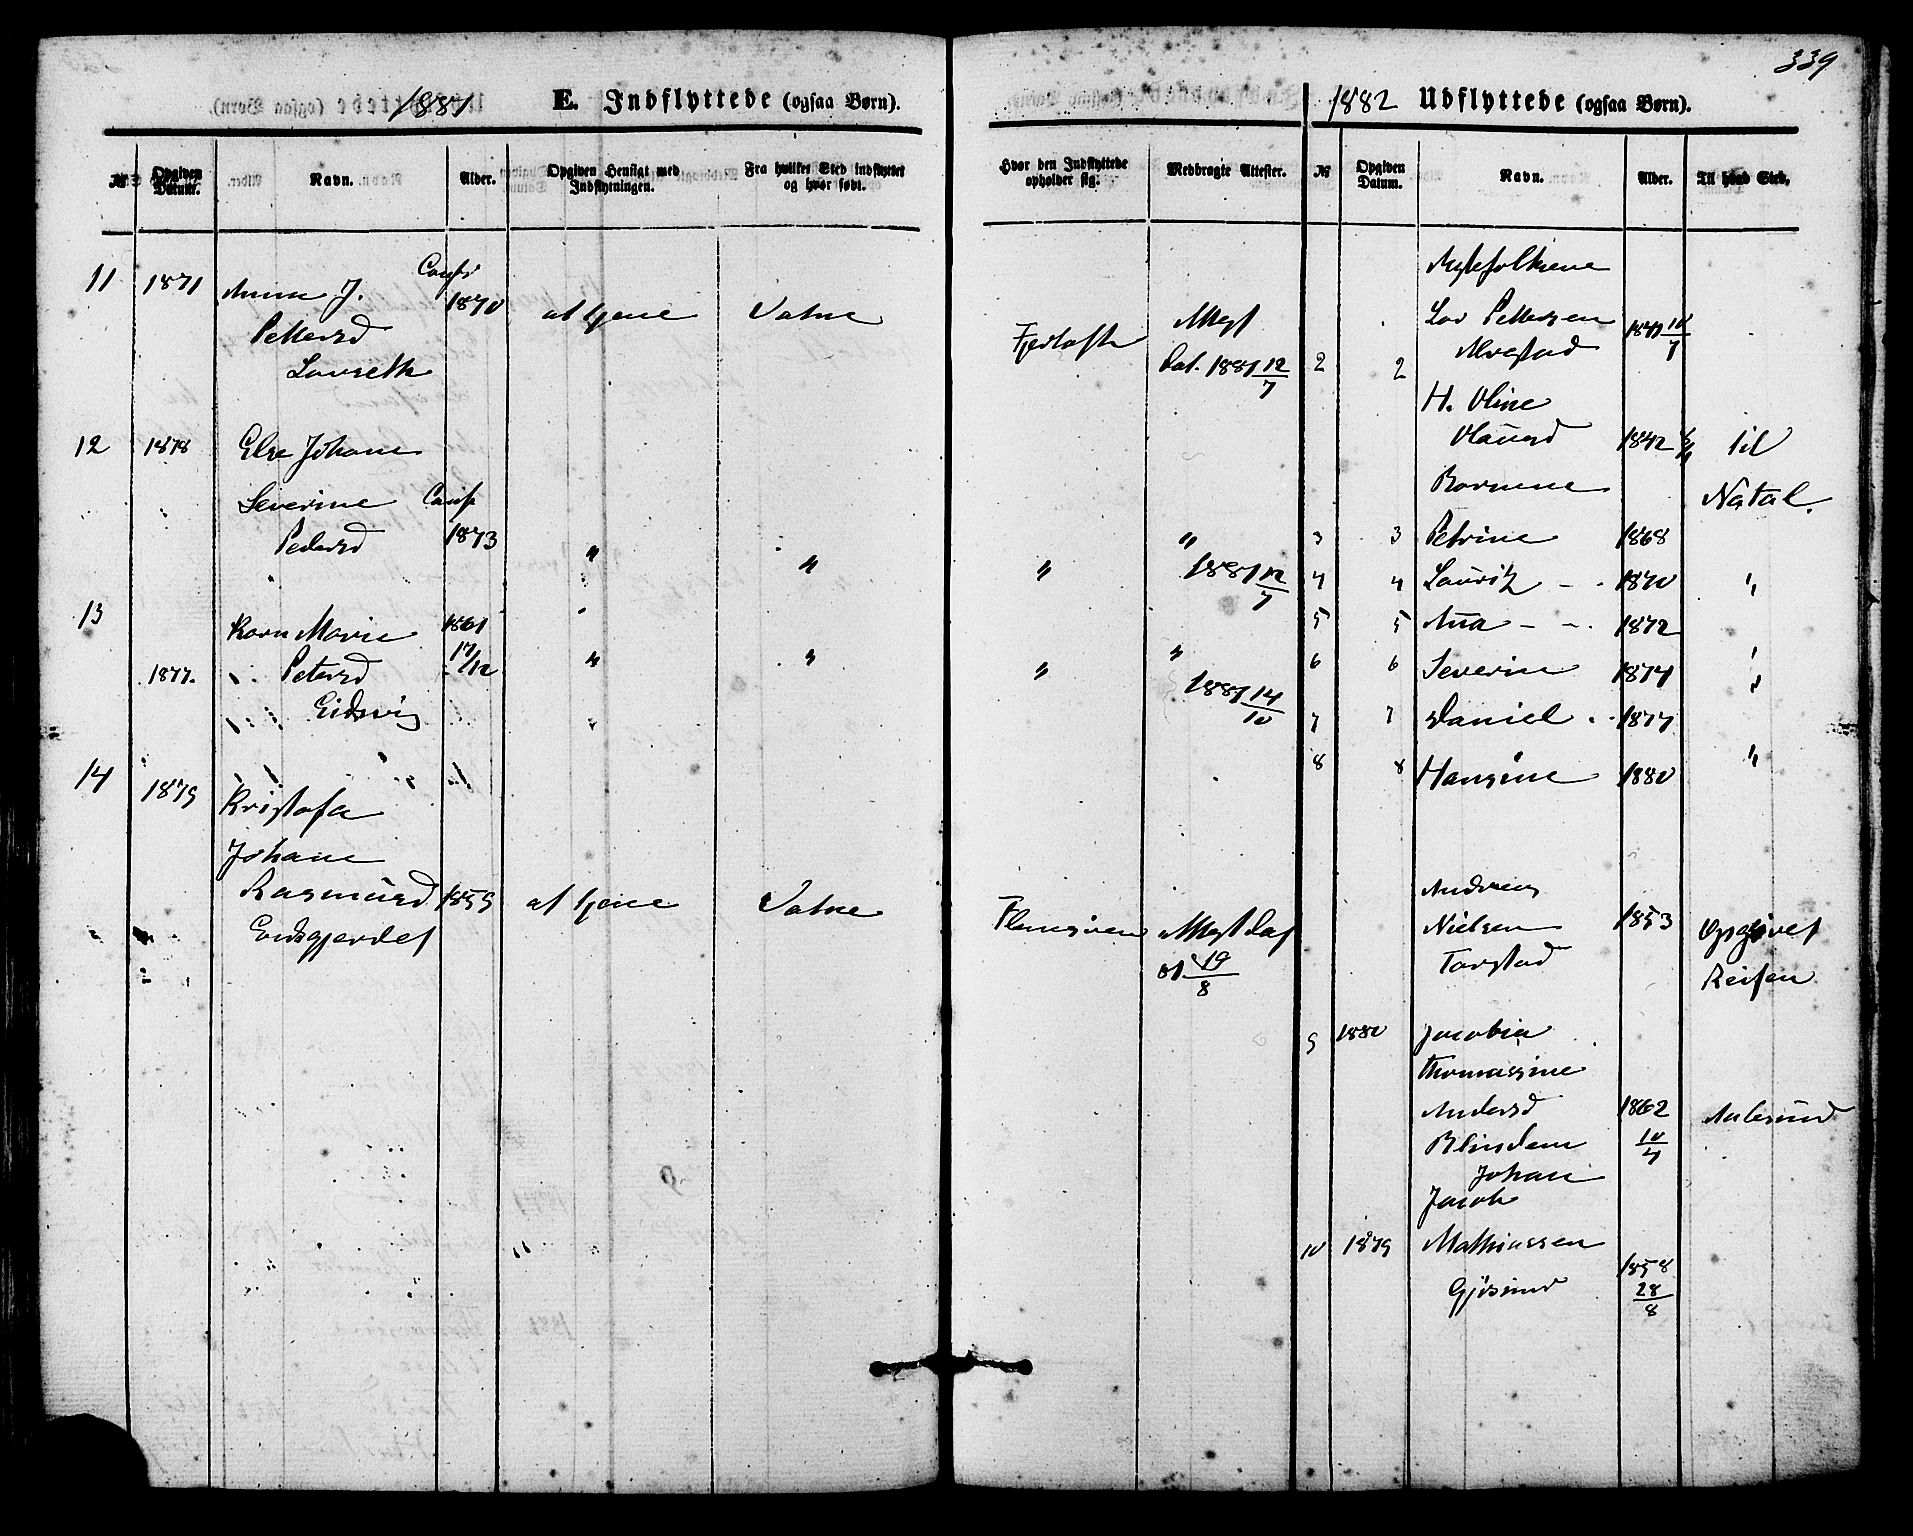 339
1881 E. Indflyttede (ogsaa Børn).
№ Opgiven Datum. Navn. Alder. Opgiven Hensigt med Indflytningen. Fra hvilket Sted indflyttet og hvor født.
Hvor den Indflyttede opholder sig. Medbragte Attester.
11 1871 Anna J. Conf.
Pettersd 1870 at tjene Vatne Fjortoft Attest
Lauseth Dat. 1881 12/7
12 1878 Else Johane
Severine Conf
Pedersd 1873 " " " "
1881 12/7
13 Karn Marie 1861
1877. Petersd 17/12 " " " "
Eidsvig 1881 14/10
14 1879 Kristofa
Johane
Rasmusd 1859 at tjene Vatne Flemsøen Attest Dat
Eidsgjerdet 81 19/8
1882 Udflyttede (ogsaa Børn).
№ Opgiven Datum. Navn. Alder. Til hvad Sted.
Ægtefolkene
Lars Pettersen
2 2 Alvestad 1841 10/7
H. Oline
Olausd 1842 til
Børnene Natal.
3 3 Petrine 1868
4 4 Lauritz - . 1870 "
5 5 Ana - - . 1872 "
6 6 Severin 1874 "
7 7 Daniel . . 1877
8 8 Hansine 1880 "
Andreas
Nielsen 1853 Opgivet
Tarstad Reisen
9 1880 Jacobia
Thomassine
Andersd 1862 Aalesund
Blindem 10/4
Johan
Jacob
10 1879 Mathiassen
Gjøsund 1858 28/8